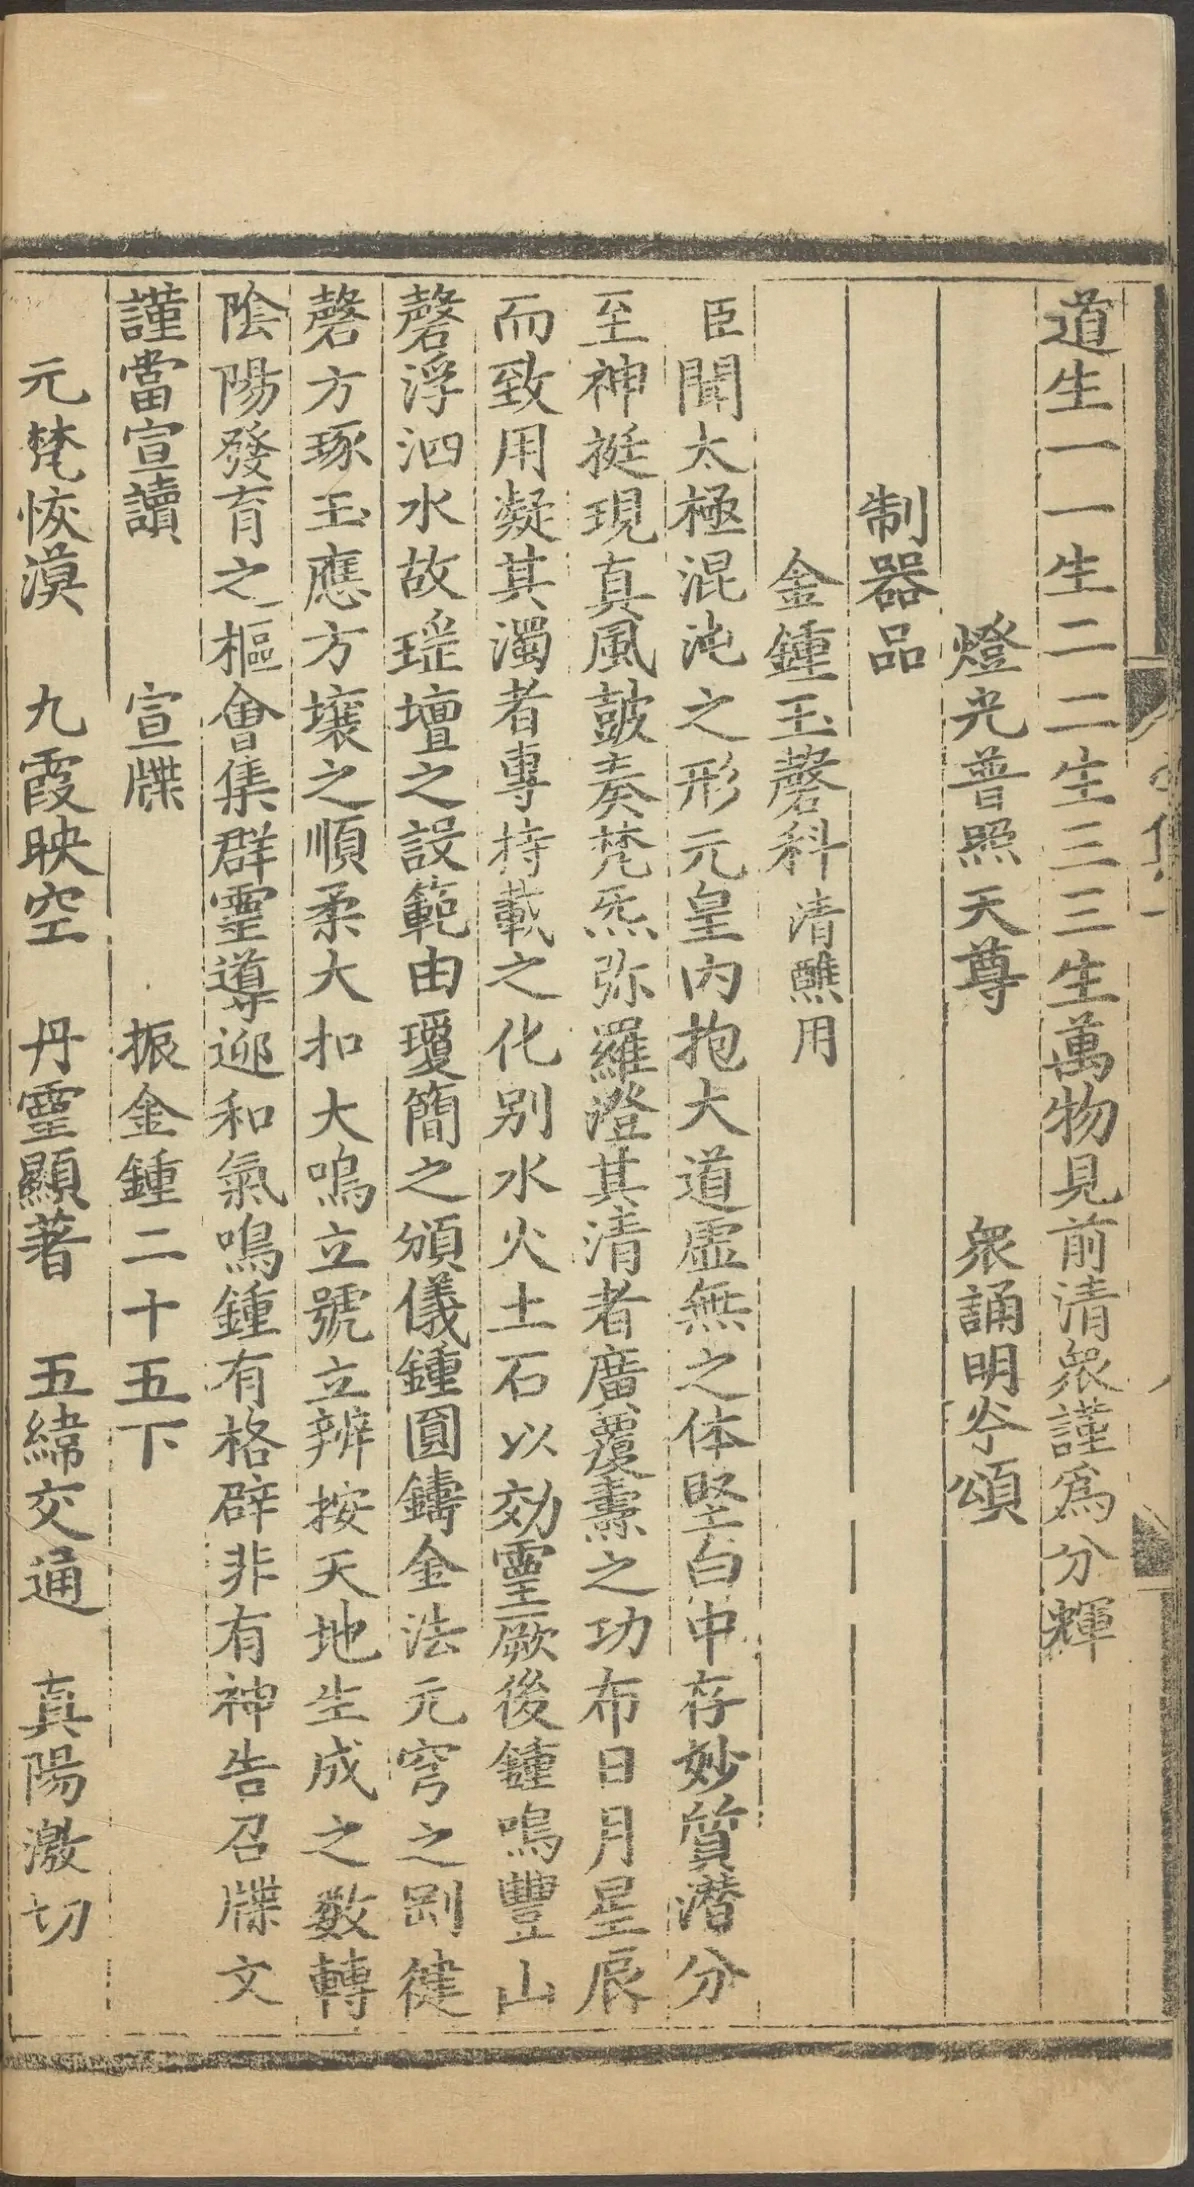 道生一一生二二生三三生萬物見前清衆謹爲分輝
燈光普照天尊　衆誦明岺頌
制器品
金鍾玉磬科清醮用
臣聞太極混沌之形元皇内抱大道虛無之体堅白中存妙質潜分
至神挺現真風鼓奏梵炁弥羅澄其清者廣覆燾之功布日月星辰
而致用凝其濁者專持載之化别水火土石以効靈厥後鍾鳴豐山
磬浮泗水故瑶壇之設範由瓊簡之頒儀鍾圓鑄金法元穹之剛健
磬方琢玉應方壤之順柔大扣大鳴立號立辨按天地生成之数轉
陰陽發育之樞會集群靈導迎和氣鳴鍾有格辟非有神告召牒文
謹當宣讀　宣牒　振金鍾二十五下
元梵恢漠　九霞映空　丹靈顯著　五緯交通　真陽激切